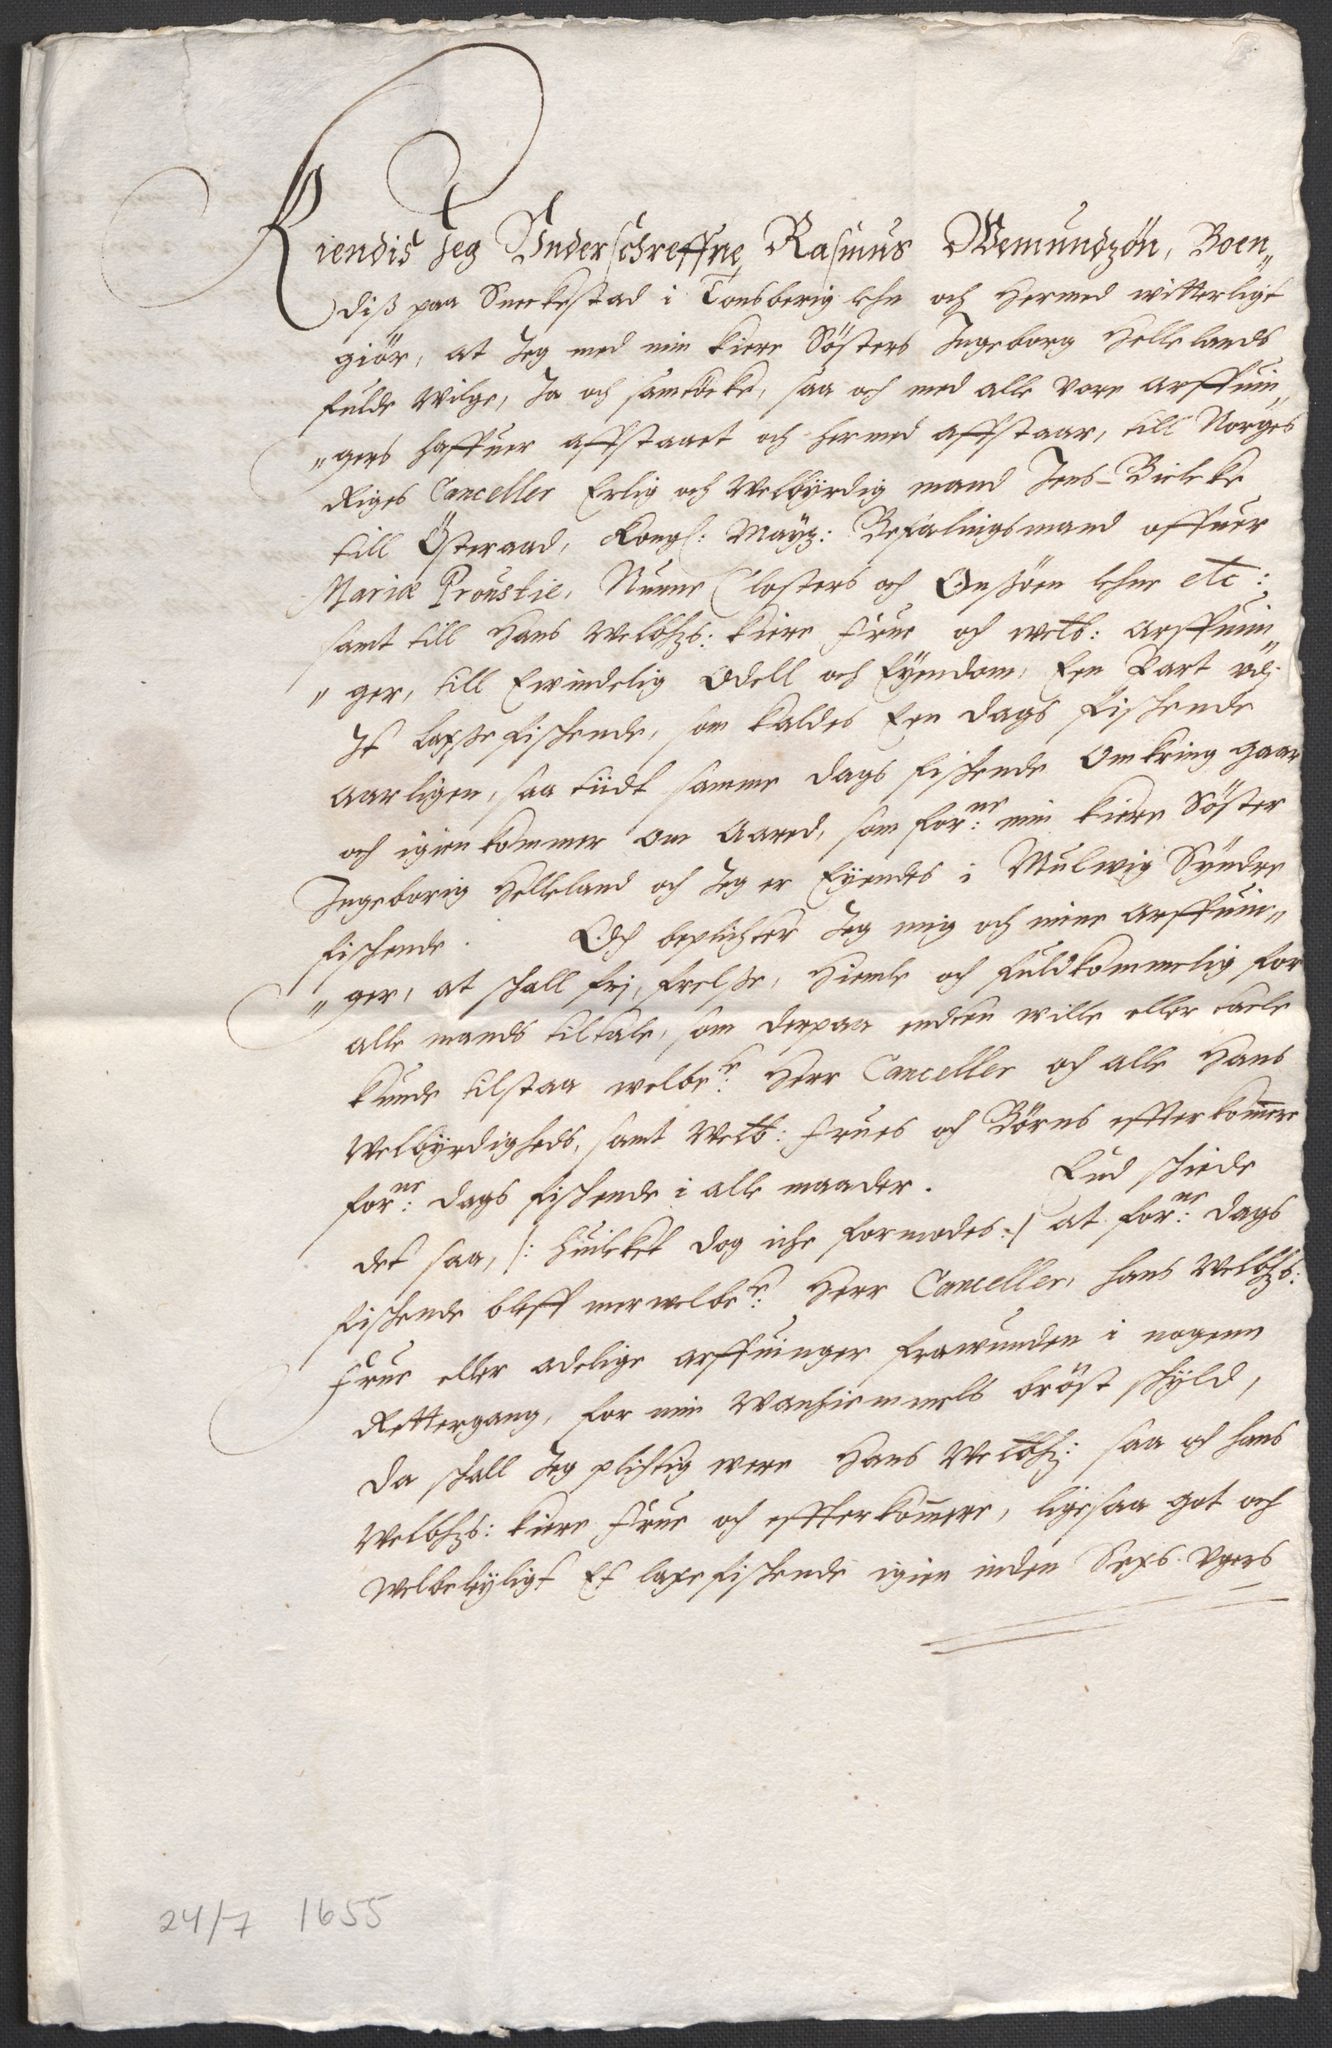 Kiendis Jeg Underschreffne Rasmus Wemundzön, Boen„
diß paa Sneckestad i Tonsberig lehn och hermed witterligt
giör, at Jeg med min kiere Søsters Ingeborg Hellelands
fulde Wilge, Ja och samtöcke, saa och med alle vore arffuin„
„gers haffuer affstaaet och hermed affstaar, till Norges
Riges Canceller Erlig och Welbÿrdig mand Jens Bielcke
till Österaad, Kongl: Maÿtz: Befalingsmand offuer
Mariæ Prouskie, Nunne Closters och Onsöen lehne etc:
samt till Hans Welbhzs: kiere frue och welb: arffuin„
„ger, till Ewindelig Odell och Eÿendom, Een Part udj
Jt laxsefischende, som kaldes Een dags fischende
aarligen, saa tiidt samme dags fischende Omkring gaar
och igien kommer om Aared, som for:ne min kiere Söster
Ingeborig Helleland och Jeg er Eÿendes i Mulwig Syndre
fischende. Och beplichter Jeg mig och mine arffuin„
„ger, at schall frj, frelße, Hiemle och fuldkommelig for
alle mands tiltale, som derpaa endten wille eller tale
kunde tilstaa welbe:te Herr Canceller och alle Hans
Welbyrdigheds, samt Welb: frues och Börns effterkommere
for:ne dags fischende i alle maader. End schiede
det saa, /: huilcket dog iche formodes :/ at for:ne dags
fischende bleff merwelbe:te Herr Canceller, hans Welbhzs:
frue eller adelige arffuinger frawunden i nogenn
Rettergang, for min Wanhiemmels bröst schÿld,
da schall Jeg plichtig were Hans Welbhz: saa och hans
Welbhzs: kiere frue och effterkommere, ligesaa got och
welbeleÿligt Et laxefischende igien inden Sexs Ugers
24/7 1655